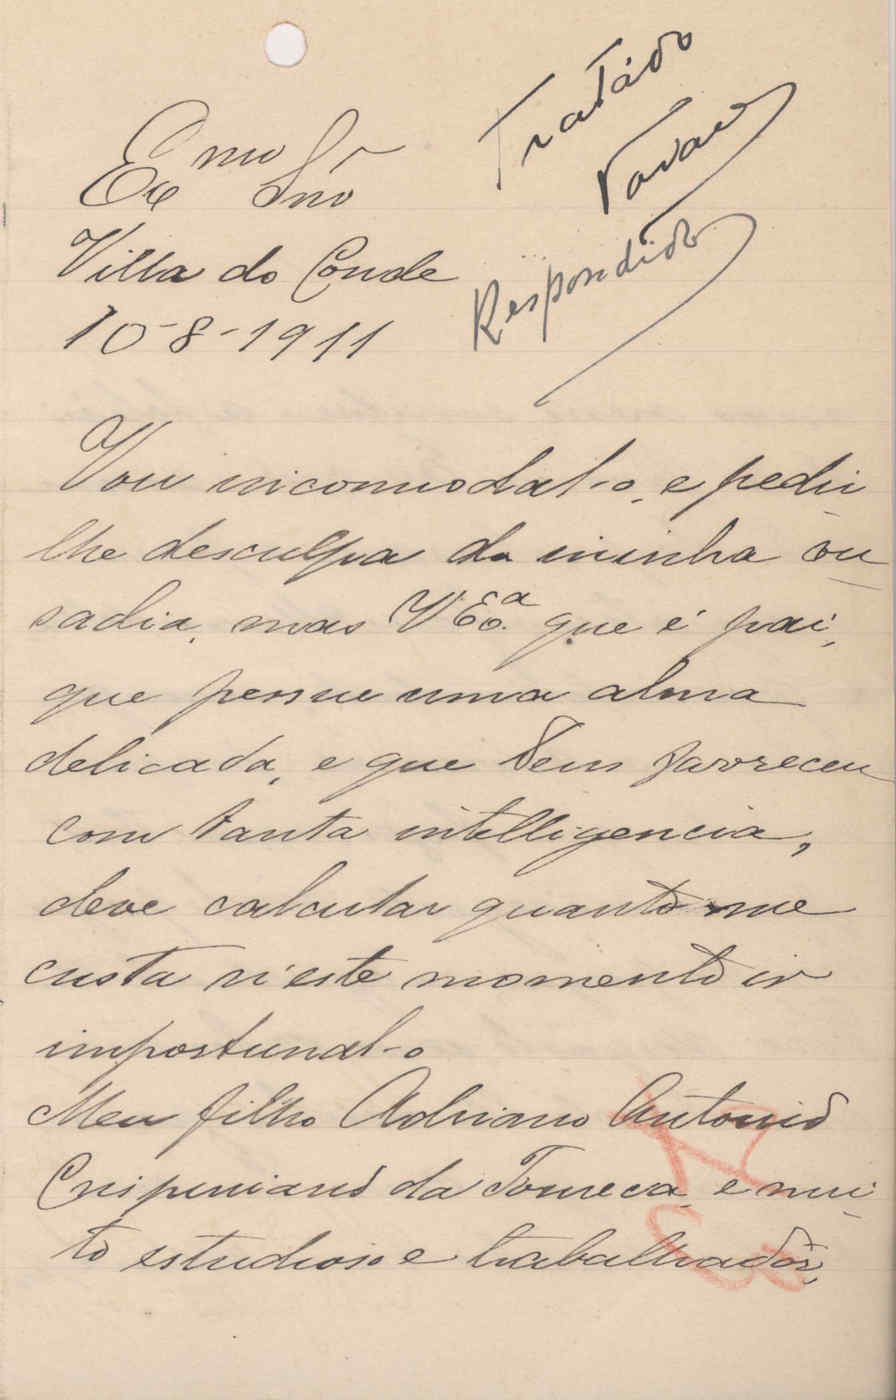 Tratado
Exmo Snr
Villa do Conde
Respondido
10-8-1911
Vou incomodal-o, e pedir
lhe desculpa da minha ou-
sadia, mas VExa. que é pai,
que possue uma alma
delicada, e que Deus favoreceu
com tanta intelligencia,
deve calcular quanto me
custa n'este momento ir
importunal-o
Meu filho Adriano Antonio
Crispiniano da Fonseca, e mui-
to estudioso e trabalhador,